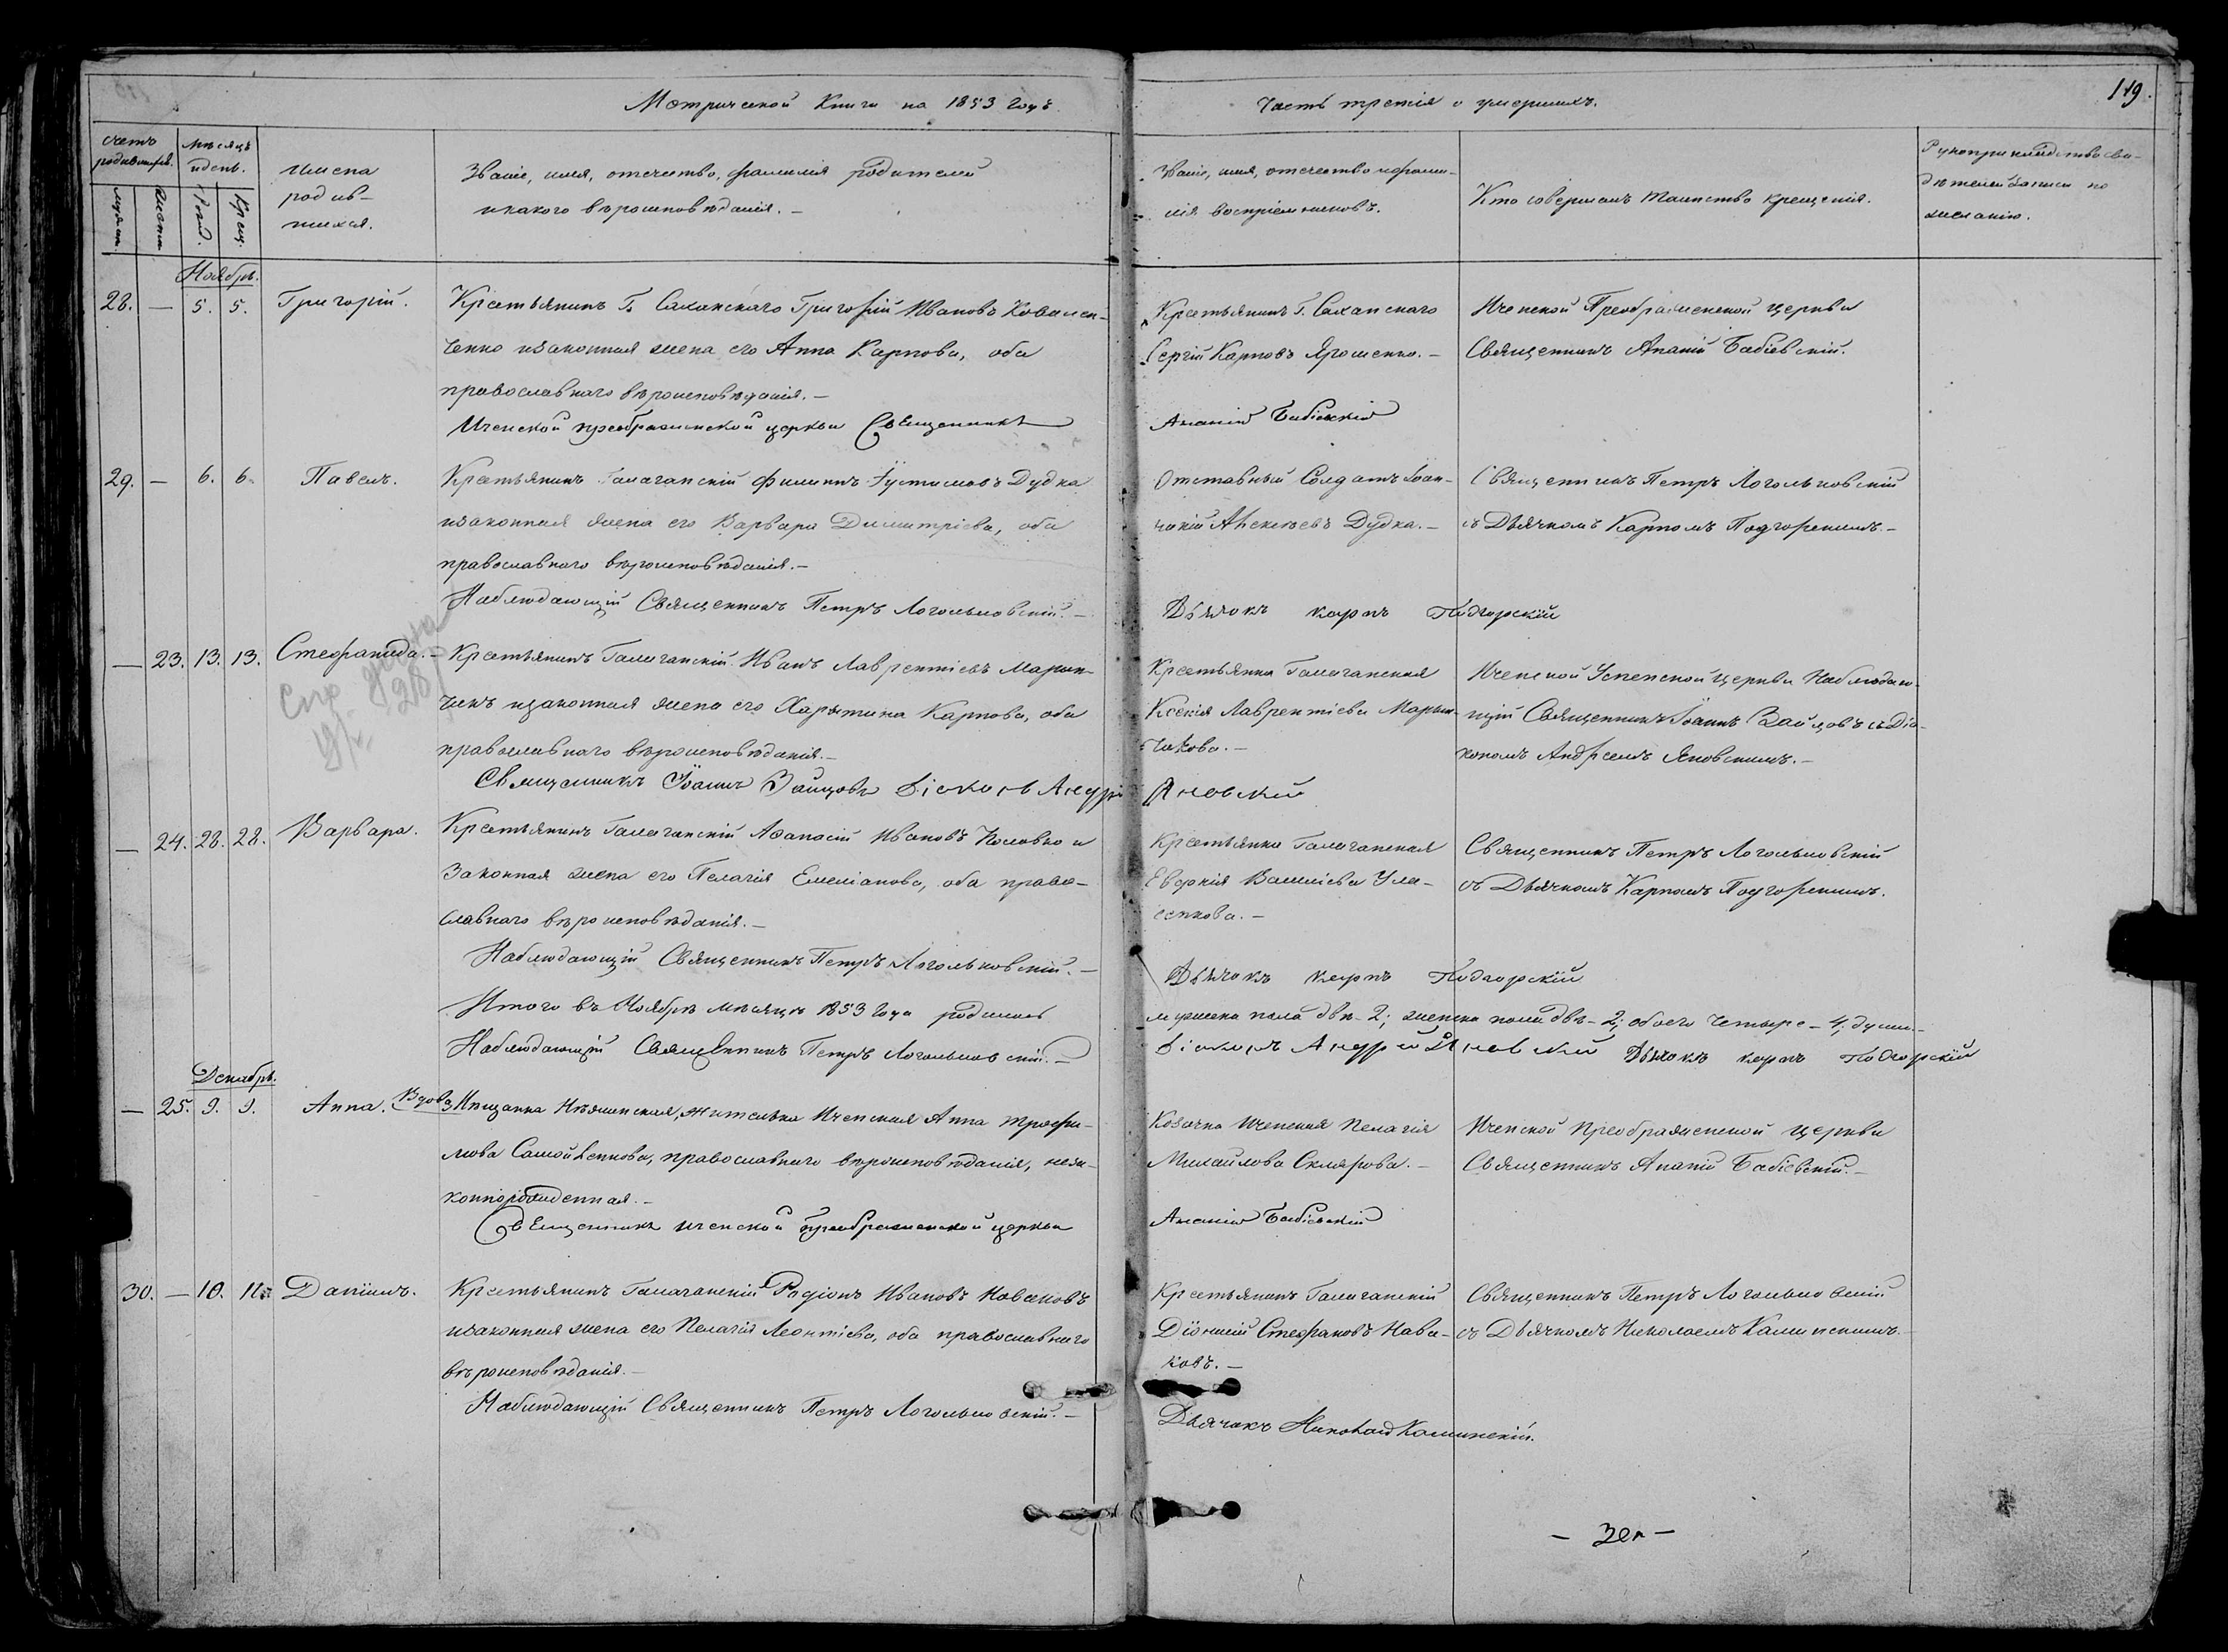 Метрической Книги на 1853 годъ
Часть третія о умершихъ.
119.
Счетъ родившихся.
Мѣсяцъ и день.
Имена родив-
шихся.
Званіе, имя, отечество, фамилія родителей
и какого вѣроисповѣданія. –
Званіе, имя, отечество и фами-
лія воспріемниковъ.
Кто совершалъ таинство крещенія.
Рукоприкладство сви-
дѣтелей записи по
желанію.
мужск.
женск.
Рожд.
Крещ.
Ноябрь.
28. — 5. 5. Григорій.
Крестьянинъ Г. Саханскаго Григорій Ивановъ Ковален-
ченко и законная жена его Анна Карпова, оба
православнаго вѣроисповѣданія. –
Иченской преображенской церкви Священникъ
Крестьянинъ Г. Саханскаго
Сергій Карповъ Ярошенко. –
Ананій Бабіевскій
Иченской Преображенской церкви
Священникъ Ананій Бабіевскій.
29. — 6. 6. Павелъ.
Крестьянинъ Галаганскій Филиппъ Іустимовъ Дудка
и законная жена его Варвара Димитріева, оба
православнаго вѣроисповѣданія. –
Наблюдающій Священникъ Петръ Логольковскій. –
Отставный Солдатъ Іоан-
Алексѣевъ Дудка. –
Дьячокъ карпъ Подгорскій
Священникъ Петръ Логольковскій
съ Дьячкомъ Карпомъ Подгорскимъ. –
— 23. 13. 13. Стефанида. –
Крестьянинъ Галаганскій Иванъ Лаврентіевъ Марин-
чикъ и законная жена его Харытина Карпова, оба
православнаго вѣроисповѣданія. –
Священникъ Іоаннъ Зайцовъ Діаконъ Андрей Яновскій
Крестьянка Галаганская
Ксенія Лаврентіева Марин-
чикова. –
Иченской Успенской церкви Наблюдаю-
щій Священникъ Іоаннъ Зайцовъ съ Діа-
кономъ Андреемъ Яновскимъ. –
— 24. 28. 28. Варвара.
Крестьянинъ Галаганскій Афанасій Ивановъ Коловко и
Законная жена его Пелагія Емеліанова, оба право-
славнаго вѣроисповѣданія. –
Наблюдающій Священникъ Петръ Логольковскій. –
Крестьянка Галаганская
Евфкія Василіева Ула-
сенкова. –
Дьячокъ карпъ Подгорскій
Священникъ Петръ Логольковскій
съ Дьячкомъ Карпомъ Подгорскимъ.
Итого въ Ноябрѣ мѣсяцѣ 1853 года родилось
мужеска пола двѣ – 2; женска пола двѣ – 2; обоего четыре – 4, души. –
Наблюдающій Священникъ Петръ Логольковскій. –
Діаконъ Андрей Яновскій Дьячокъ карпъ Подгорскій
Декабрь.
— 25. 9. 9. Анна.
Вдова Мѣщанка Нѣжинская, жителька Иченская Анна Трофи-
мова Самойленкова, православнаго вѣроисповѣданія, неза-
коннорожденная. –
Священникъ иченской преображенской церкви
Козачка Иченская Пелагія
Михайлова Склярова. –
Ананій Бабіевскій
Иченской Преображенской церкви
Священникъ Ананій Бабіевскій. –
30. — 10. Даніилъ.
Крестьянинъ Галаганскій Родіонъ Ивановъ Новаковъ
и законная жена его Пелагія Леонтіева, оба православнаго
вѣроисповѣданія. –
Наблюдающій Священникъ Петръ Логольковскій. –
Крестьянинъ Галаганскій
Діонисій Стефановъ Нова-
ковъ. –
Дьячокъ Николай Каминскій.
Священникъ Петръ Логольковскій
съ Дьячкомъ Николаемъ Каминскимъ. –